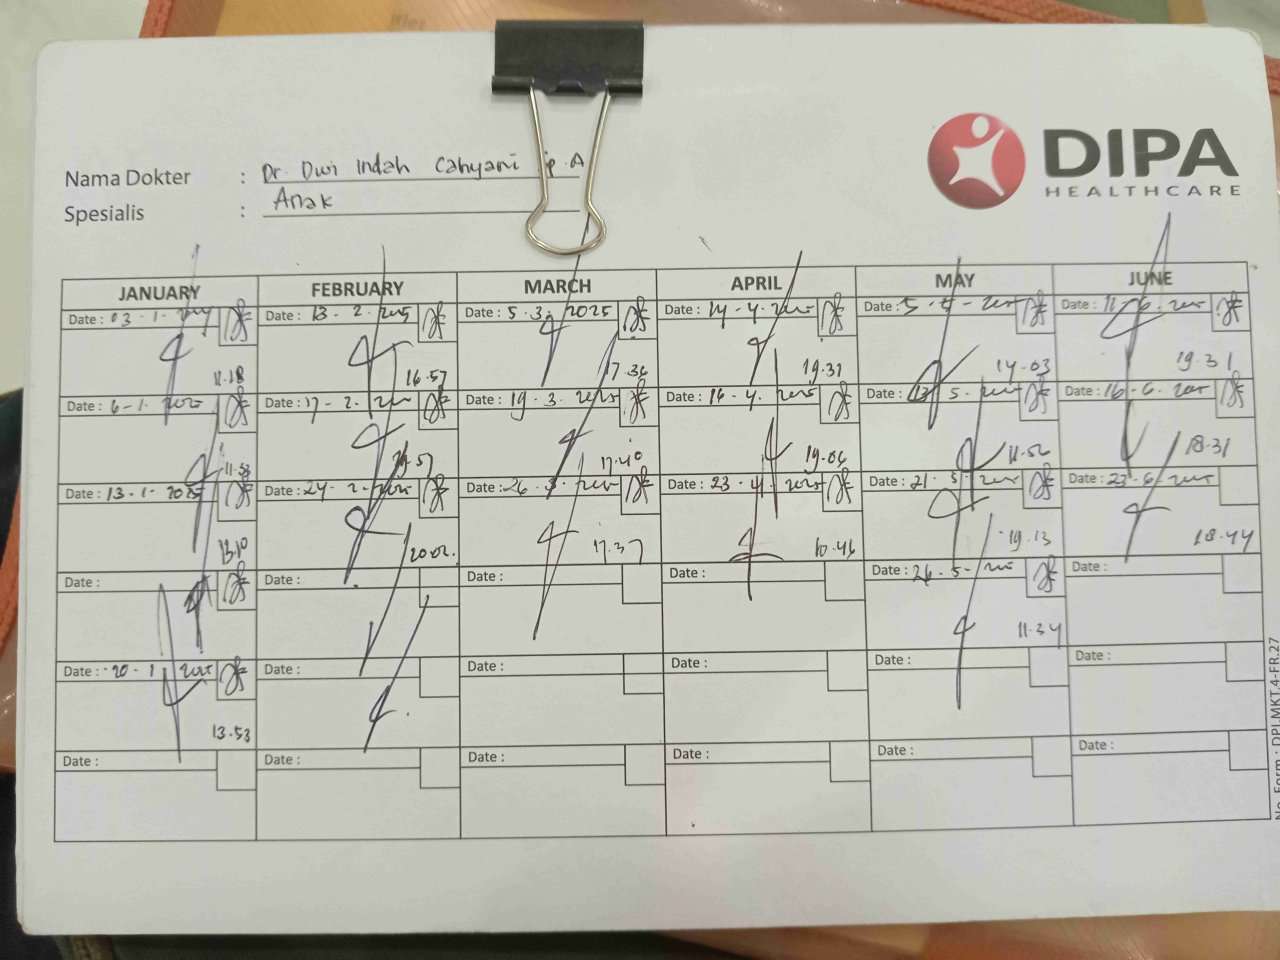 DIPA
HEALTHCARE
Nama Dokter : Dr. Dwi Indah Cahyani p.A
Spesialis : Anak
JANUARY FEBRUARY MARCH APRIL MAY JUNE
Date : 03-1- Date : 13-2-2025 Date : 5-3-2025 Date : 14-4-2025 Date : 5-5-2025 Date : 11-6-2025
11.18 16.57 17.36 19.31 14.03 19.31
Date : 6-1-2025 Date : 17-2-2025 Date : 19-3-2025 Date : 16-4-2025 Date : 5-2025 Date : 16-6-2025
11.53 17.40 19.06 11.56 18.31
Date : 13-1-2025 Date : 24-2-2025 Date : 26-3-2025 Date : 23-4-2025 Date : 21-5-2025 Date : 23-6-2025
13.10 20.02. 17.37 10.46 19.13 18.44
Date : Date : Date : Date : Date : 26-5-2025 Date :
11.34
Date : 20-1-2025 Date : Date : Date : Date : Date :
13.53
Date : Date : Date : Date : Date : Date :
No. Form : DPI.MKT.4-FR.27